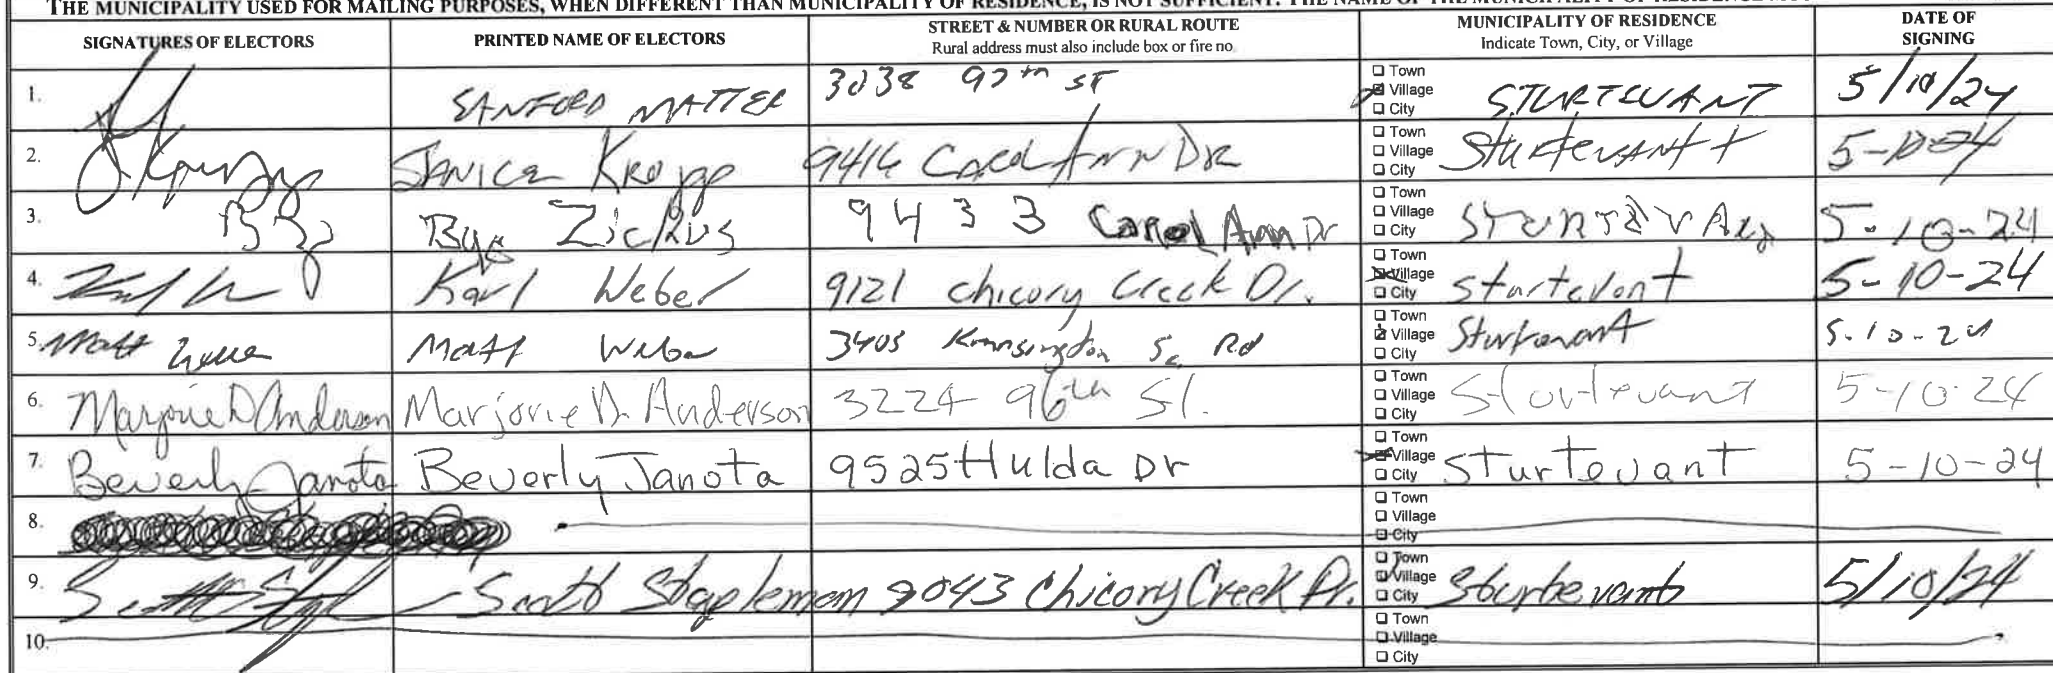 THE MUNICIPALITY USED FOR MAILING PURPOSES, WHEN DIFFERENT THAN MUNICIPALITY OF RESIDENCE, IS NOT SUFFICIENT. THE NAME OF THE MUNICIPALITY OF RESIDENCE
SIGNATURES OF ELECTORS PRINTED NAME OF ELECTORS STREET & NUMBER OR RURAL ROUTE Rural address must also include box or fire no. MUNICIPALITY OF RESIDENCE Indicate Town, City, or Village DATE OF SIGNING
1. SANFORD MATTER 3038 97th ST Town Village City STURTEVANT 5/10/24
2. JANICE Kropp 9416 Carol Ann DR Town Village City Sturtevant 5-10-24
3. Zickus 9433 Carol Ann Dr Town Village City 5-10-24
4. Karl Weber 9121 Chicory Creek Dr. Town Village City Sturtevant 5-10-24
5. Matt Matt Weber 3405 Sq Rd Town Village City Sturtevant 5-10-24
6. Marjorie D Anderson Marjorie D. Anderson 3224 96th St. Town Village City Sturtevant 5-10-24
7. Beverly Janota Beverly Janota 9525 Hulda Dr Town Village City Sturtevant 5-10-24
8. Town Village City
9. Scott Scott Stapleman 9043 Chicory Creek Dr. Town Village City Sturtevant 5/10/24
10. Town Village City